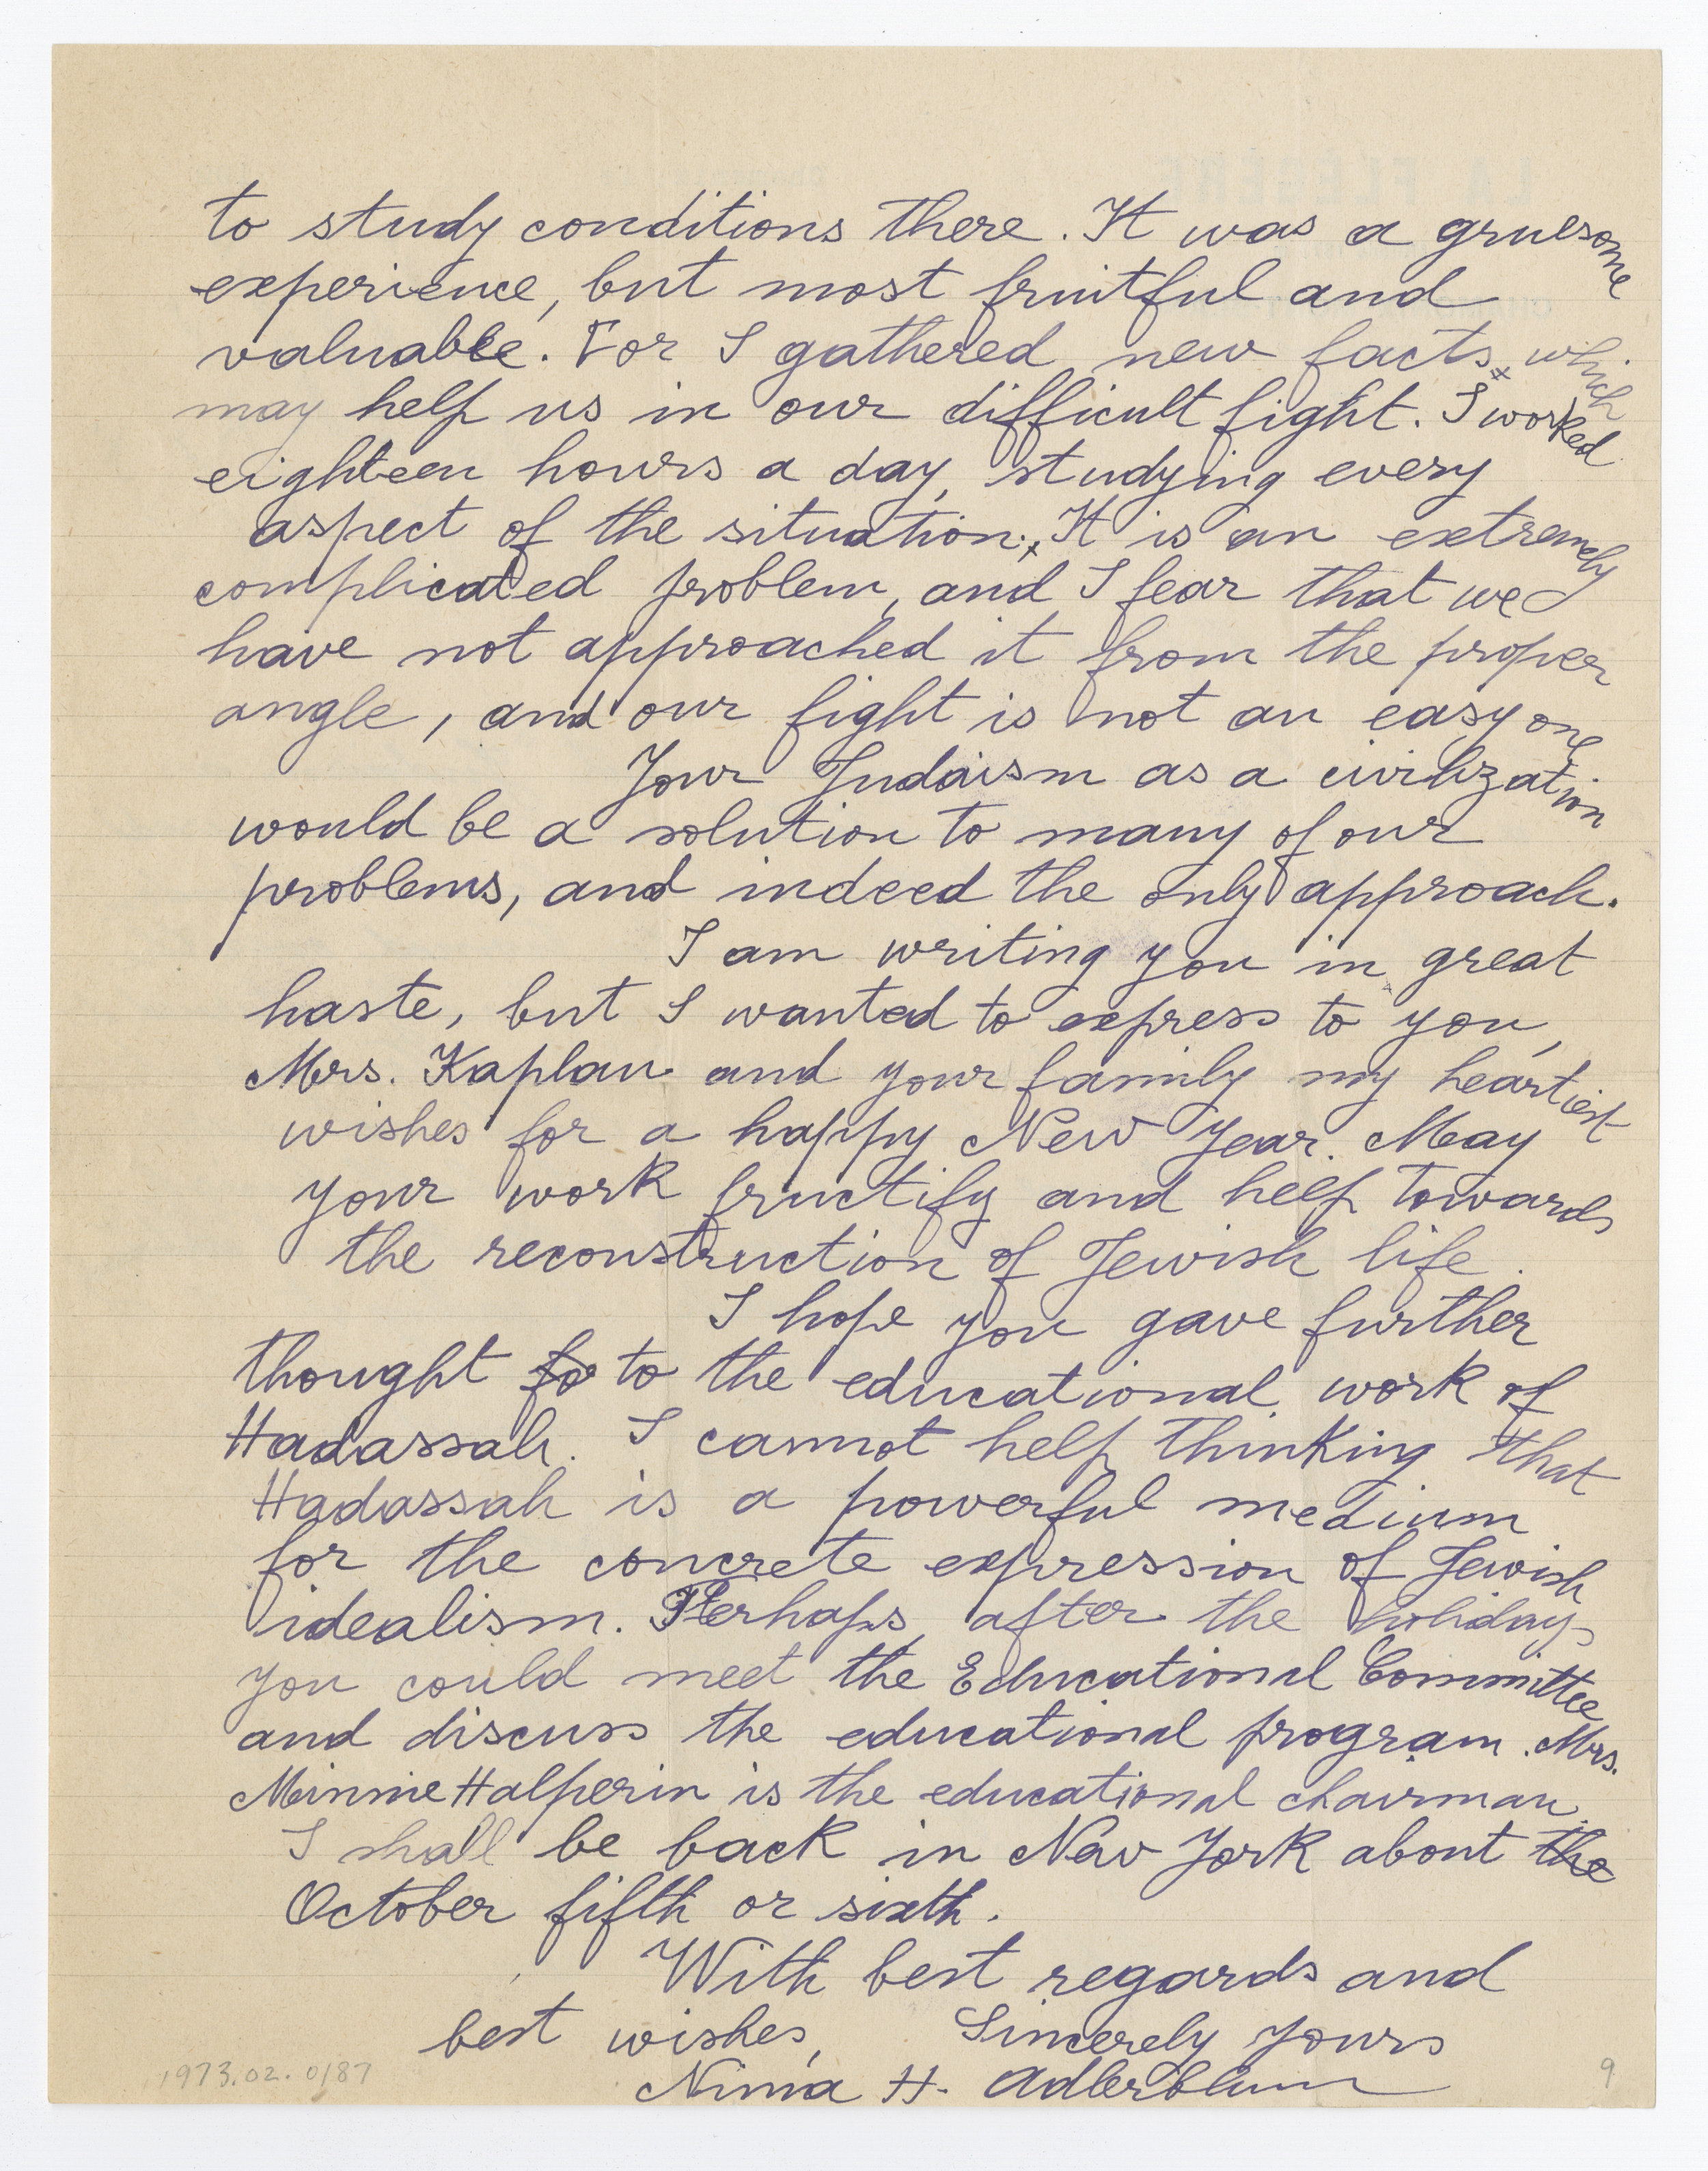 to study conditions there. It was a gruesome
experience, but most fruitful and
valuable. For I gathered new facts which
may help us in our difficult fight. I worked
eighteen hours a day, studying every
aspect of the situation. It is an extremely
complicated problem, and I fear that we
have not approached it from the proper
angle, and our fight is not an easy one
Your Judaism as a civilization
would be a solution to many of our
problems, and indeed the only approach.
I am writing you in great
haste, but I wanted to express to you,
Mrs. Kaplan and your family my heartiest
wishes for a happy New Year. May
your work fructify and help towards
the reconstruction of Jewish life.
I hope you gave further
thought for to the educational work of
Hadassah. I cannot help thinking that
Hadassah is a powerful medium
for the concrete expression of Jewish
idealism. Perhaps after the holidays
you could meet the Educational Committee
and discuss the educational program. Mrs.
Minnie Halperin is the educational chairman.
I shall be back in New York about the
October fifth or sixth.
With best regards and
best wishes, Sincerely yours
Nima H. Adlerblum
1973.02.0187
9